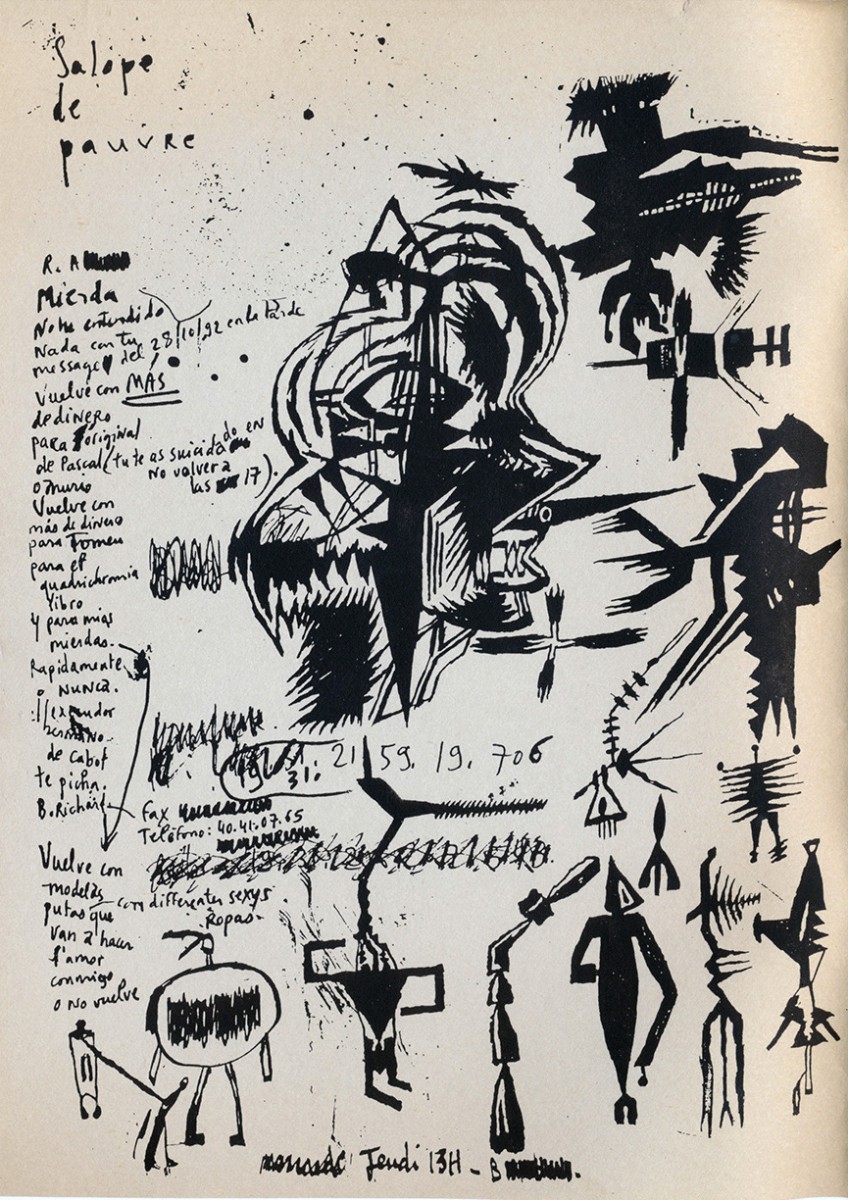 Salope
de
pauvre
R. A
Mierda
No he entendido
Nada con tu
message del 28/10/92 en la tarde
Vuelve con MÁS
de dinero
para original
de Pascal (tu te as suicidado en
No volver a
las 17).
o murio
Vuelve con
más de dinero
para Tomeu
para el
quadrichromia
libro
y para mias
mierdas.
Rapidamente
o NUNCA.
de Cabot
te picha.
B. Richard
21 59. 19. 706
31.
Fax
Teléfono: 40.41.07.65
Vuelve con
modelas
con differentes sexys
Ropas.
putas que
van a hacer
l'amor
conmigo
o No vuelve
Jeudi 13H _ B